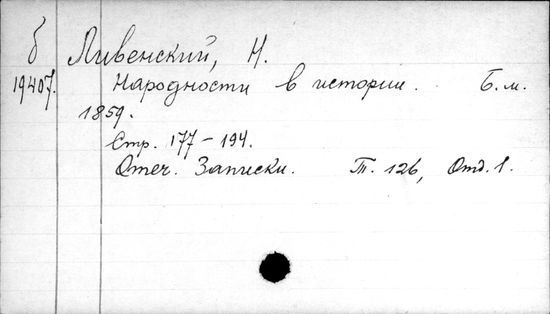 б Ливенский, Н.
19407. Народности в истории. Б.м.
1859.
Стр. 177-194.
Отеч. Записки. Т. 126, Отд. 1.